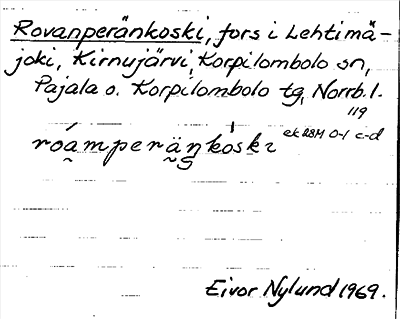 Rovanperänkoski, fors i Lehtimä-
joki, Kirnujärvi, Korpilombolo sn,
Pajala o. Korpilombolo tg, Norrb. l.
119
roámperäŋkòski ek RBM 0-1 c-d
Eivor Nylund 1969.